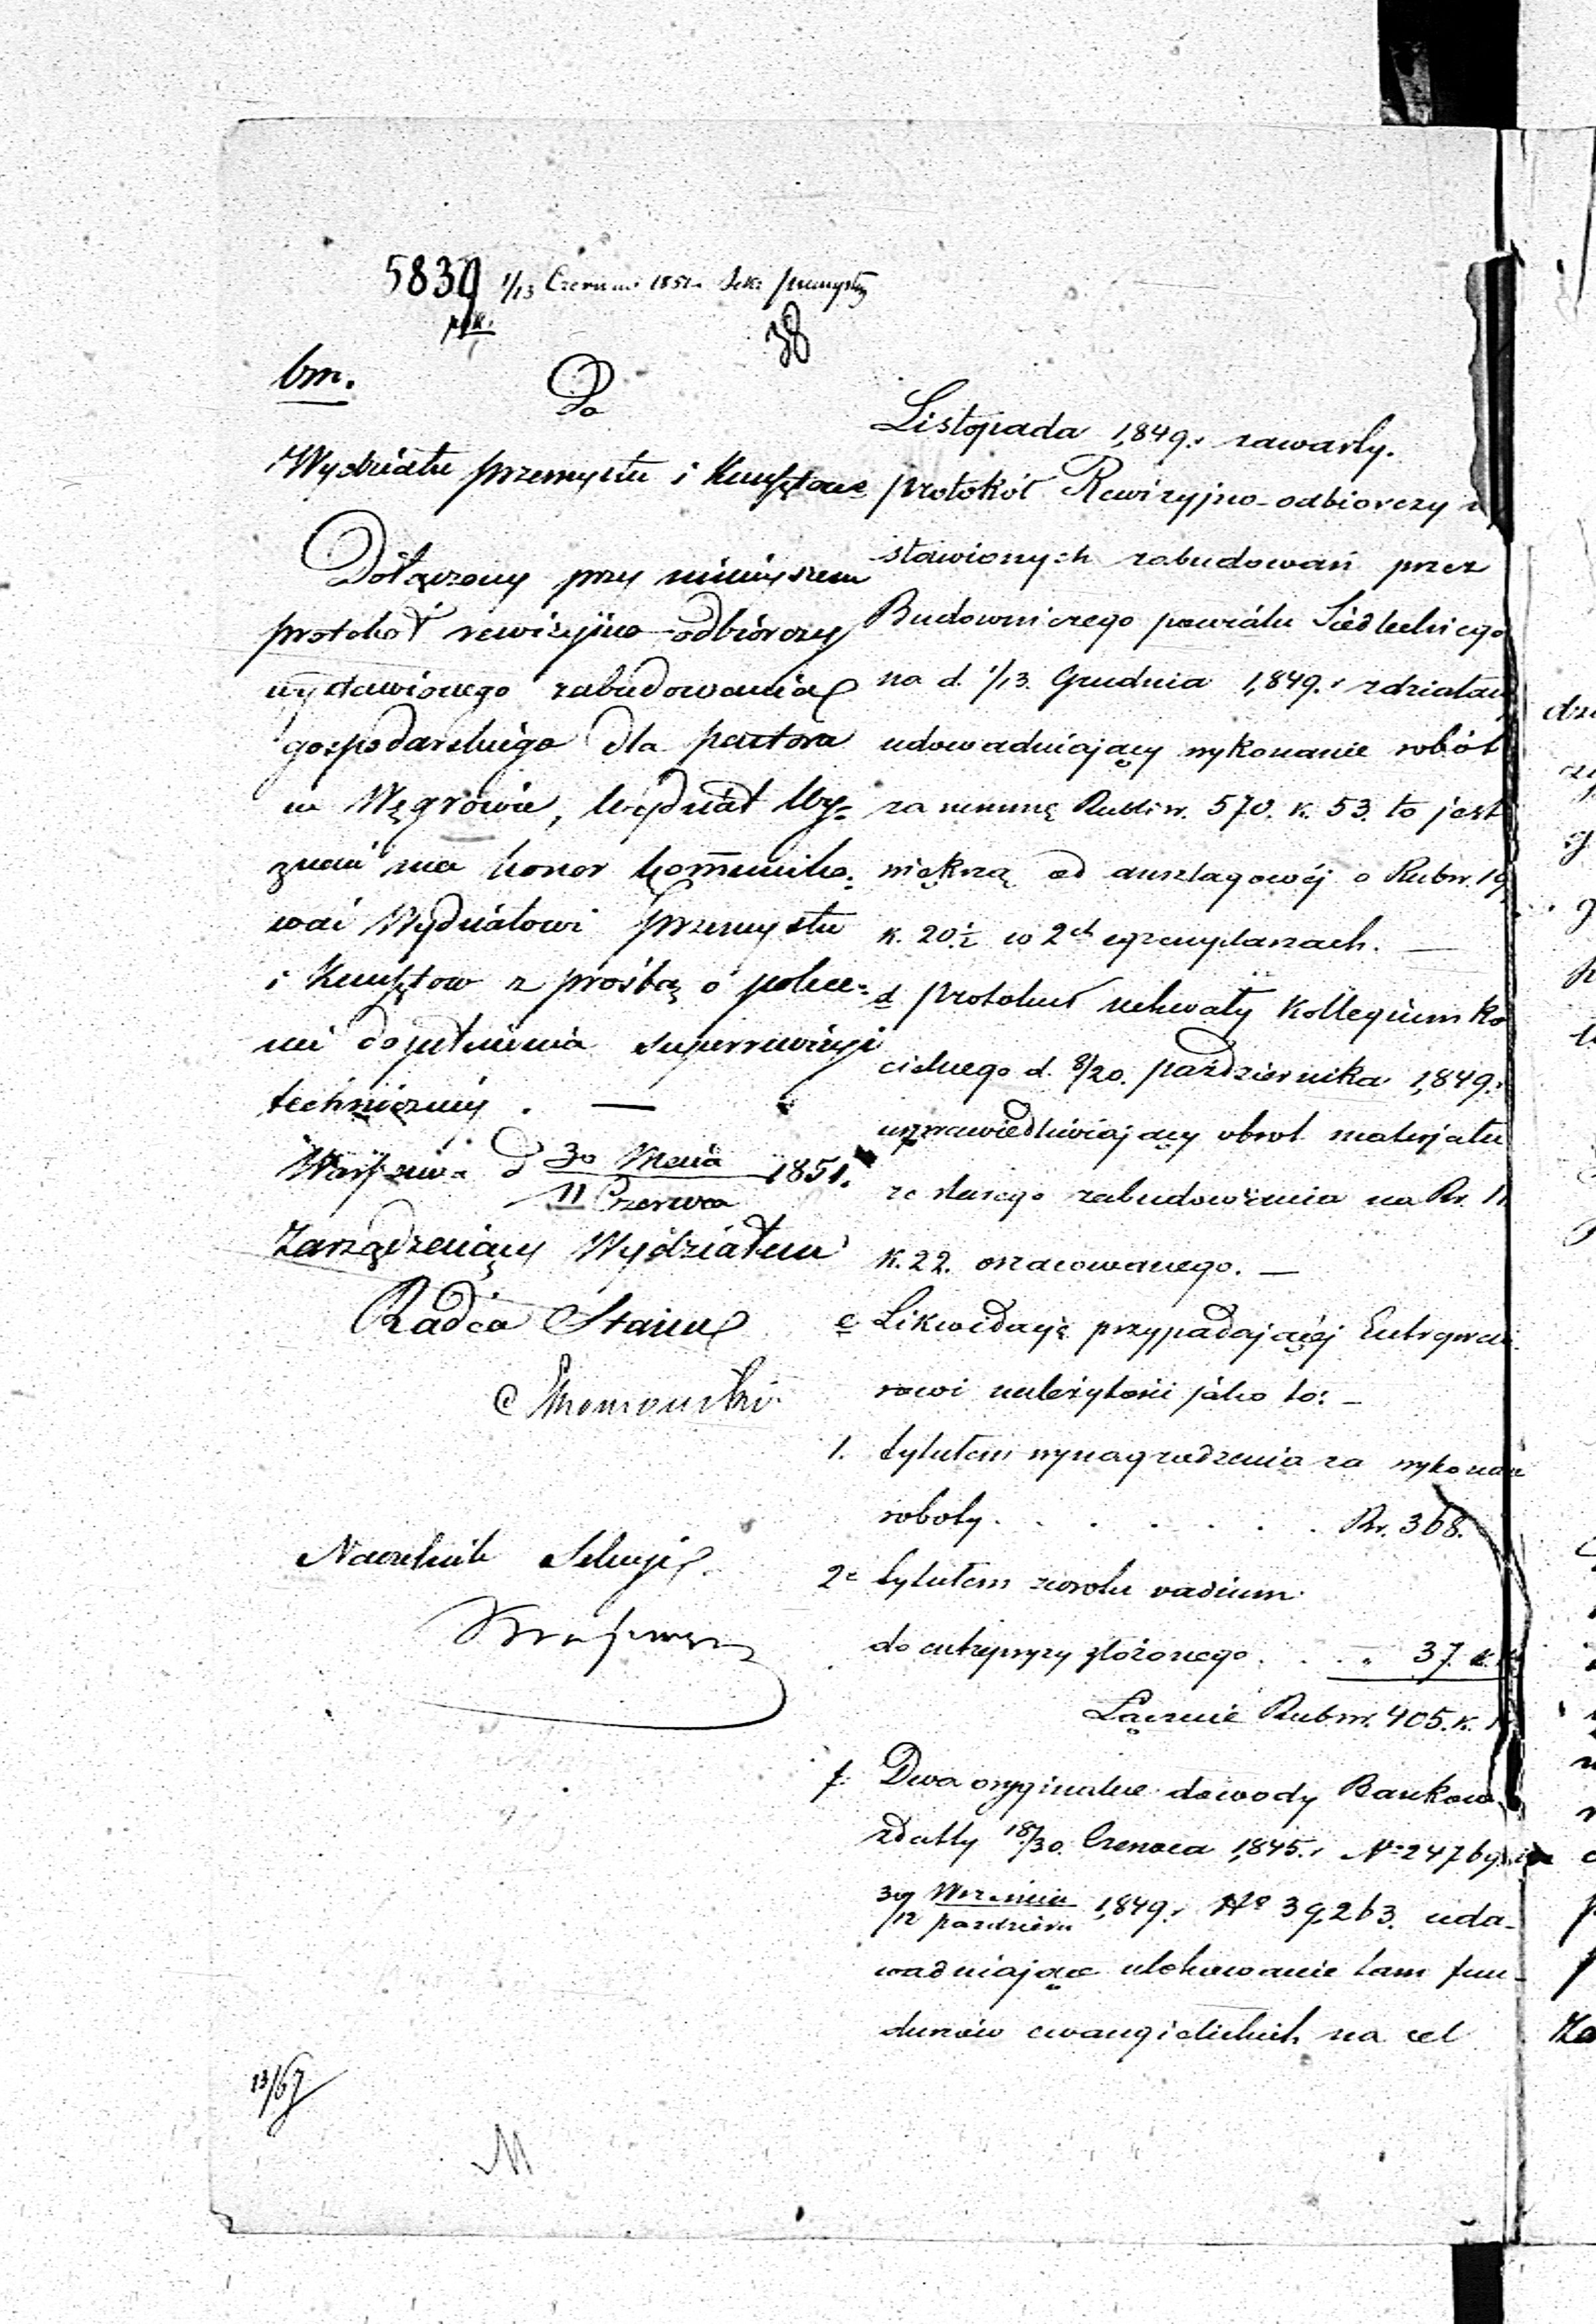 5839 1/13 Czerwca 1851 Sek: przemysłu
38
bm.
Do
Wydziału przemysłu i Kunsztów
Dołączony przy niniejszem
protokół rewizyjno-odbiorczy
wystawionego zabudowania
gospodarskiego dla pastora
w Węgrowie, Wydział Wy-
znań ma honor kommuniko-
wać Wydziałowi przemysłu
i Kunsztow z prośbą o polece-
nie dopełnienia superrewizyi
technicznej. —
Warszawa d 30 Maja / 11 Czerwca 1851.
Zarządzający Wydziałem
Radca Stanu
Naczelnik Sekcyi
13/67
M
Listopada 1,849. r zawarty.
protokół Rewizyjno-odbiorczy
stawionych zabudowań przez
Budowniczego powiatu Siedleckiego
na d. 1/13. Grudnia 1,849. r zdziałany
udowadniający wykonanie robót
za summę Rubsr. 570. k. 53. to jest
większą od anszlagowéj o Rubsr. 19
k. 20 1/2 w 2ch egzemplarzach. —
d protokuł uchwały Kollegium Ko
cielnego d. 8/20. października 1,849. r
usprawiedliwiający obrot materjału
ze starego zabudowania na Rs. 11
k. 22. oszacowanego. —
e Likwidacyę przypadającéj Entrepre
rowi należytości jako to: —
1. tytułem wynagrodzenia za wykonan
roboty . . . . . . . Rs. 368.
2e tytułem zwrotu vadium
do entrepryzy złożonego . . . „ 37. k.
Łącznie Rubsr. 405. k.
f: Dwa oryginalne dowody Bankow
z daty 18/30. Czerwca 1,845. r No 24769
30 Września / 12 październ 1,849. r No 39,263. udo-
wadniające ulokowanie tam fun-
duszów ewangielickich na cel